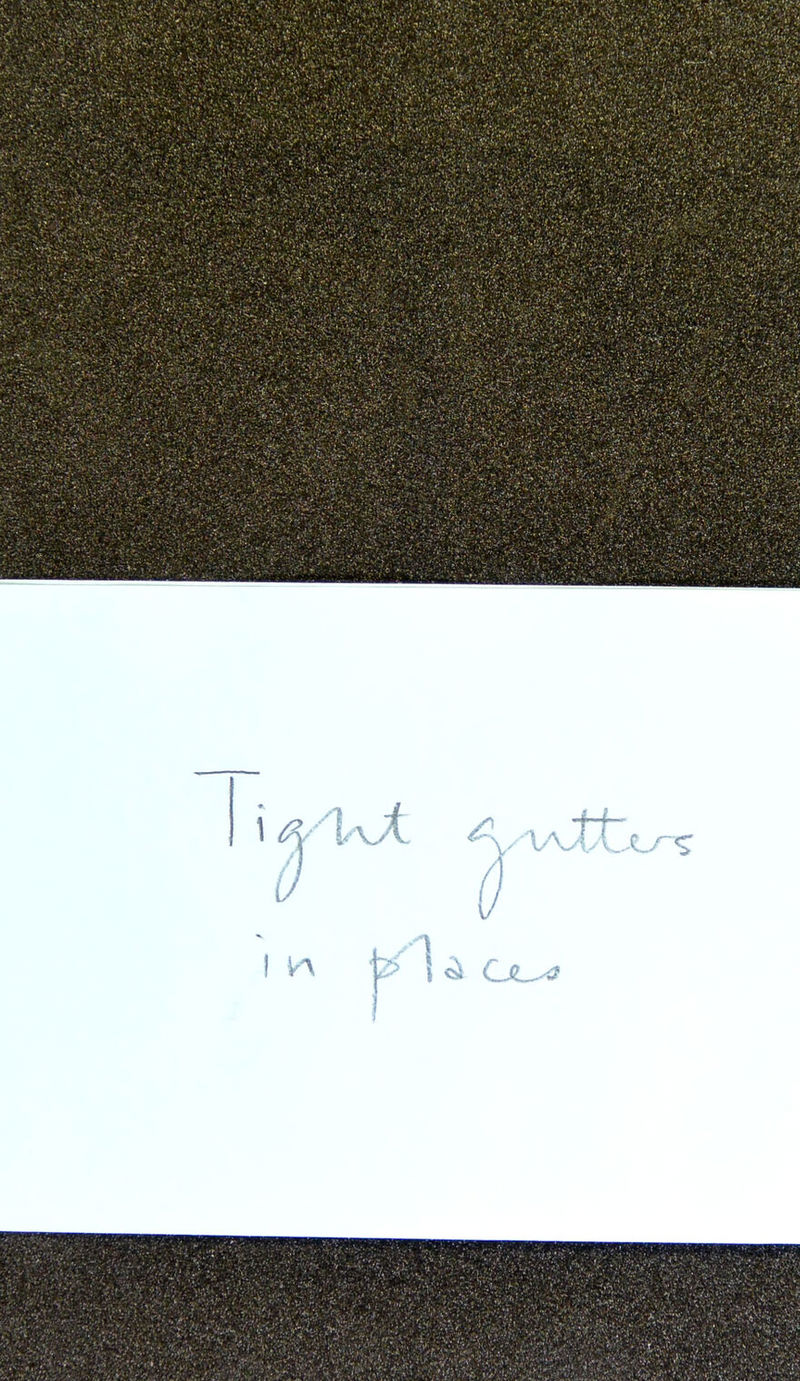 Tight gutters
in places